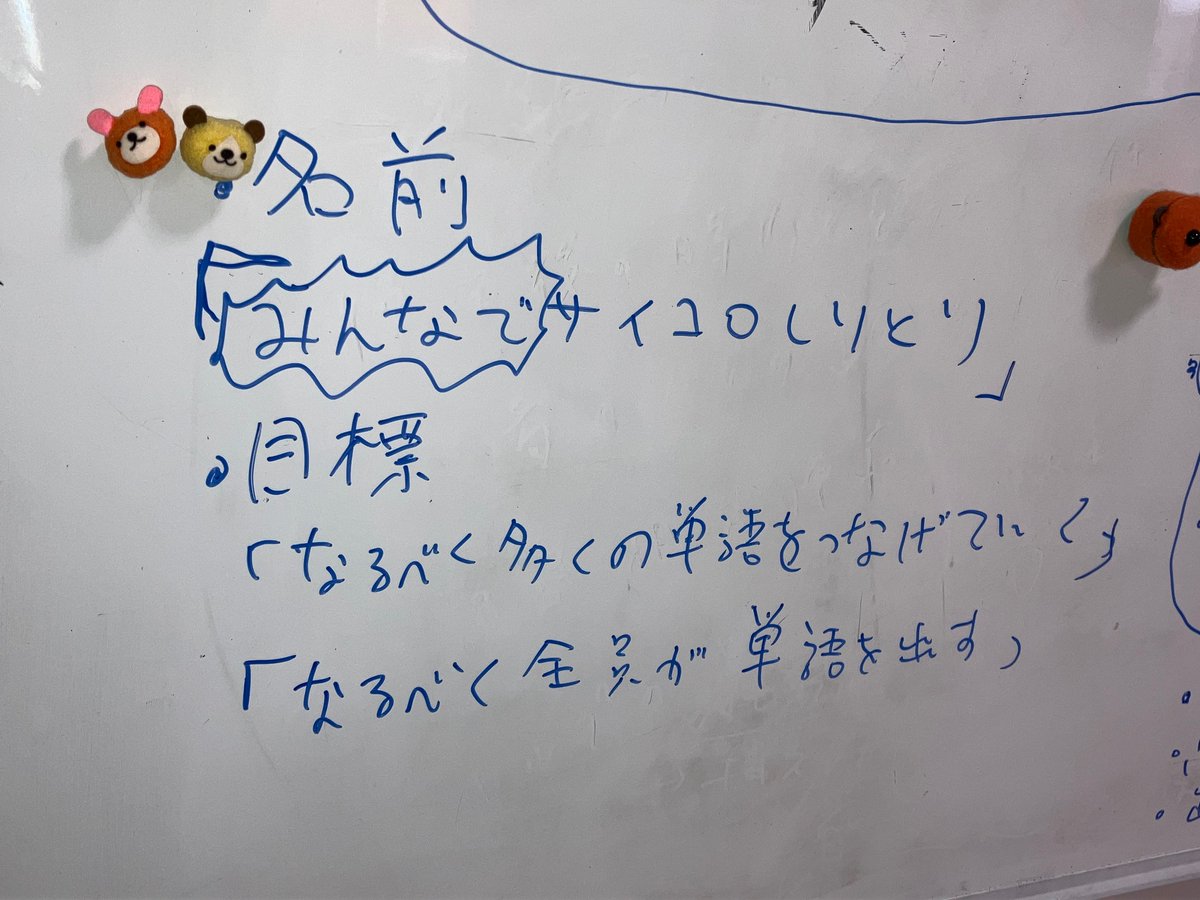 ・名前
「みんなでサイコロしりとり」
・目標
「なるべく多くの単語をつなげていく」
「なるべく全員が単語を出す」